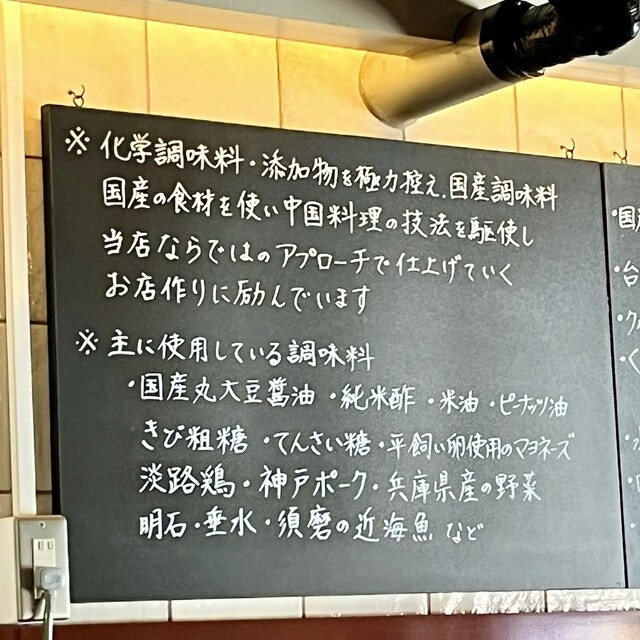 ※ 化学調味料・添加物を極力控え、国産調味料
国産の食材を使い中国料理の技法を駆使し
当店ならではのアプローチで仕上げていく
お店作りに励んでいます
※ 主に使用している調味料
・国産丸大豆醤油 ・純米酢 ・米油 ・ピーナッツ油
きび粗糖 ・てんさい糖・平飼い卵使用のマヨネーズ
淡路鶏・神戸ポーク・兵庫県産の野菜
明石・垂水・須磨の近海魚 など